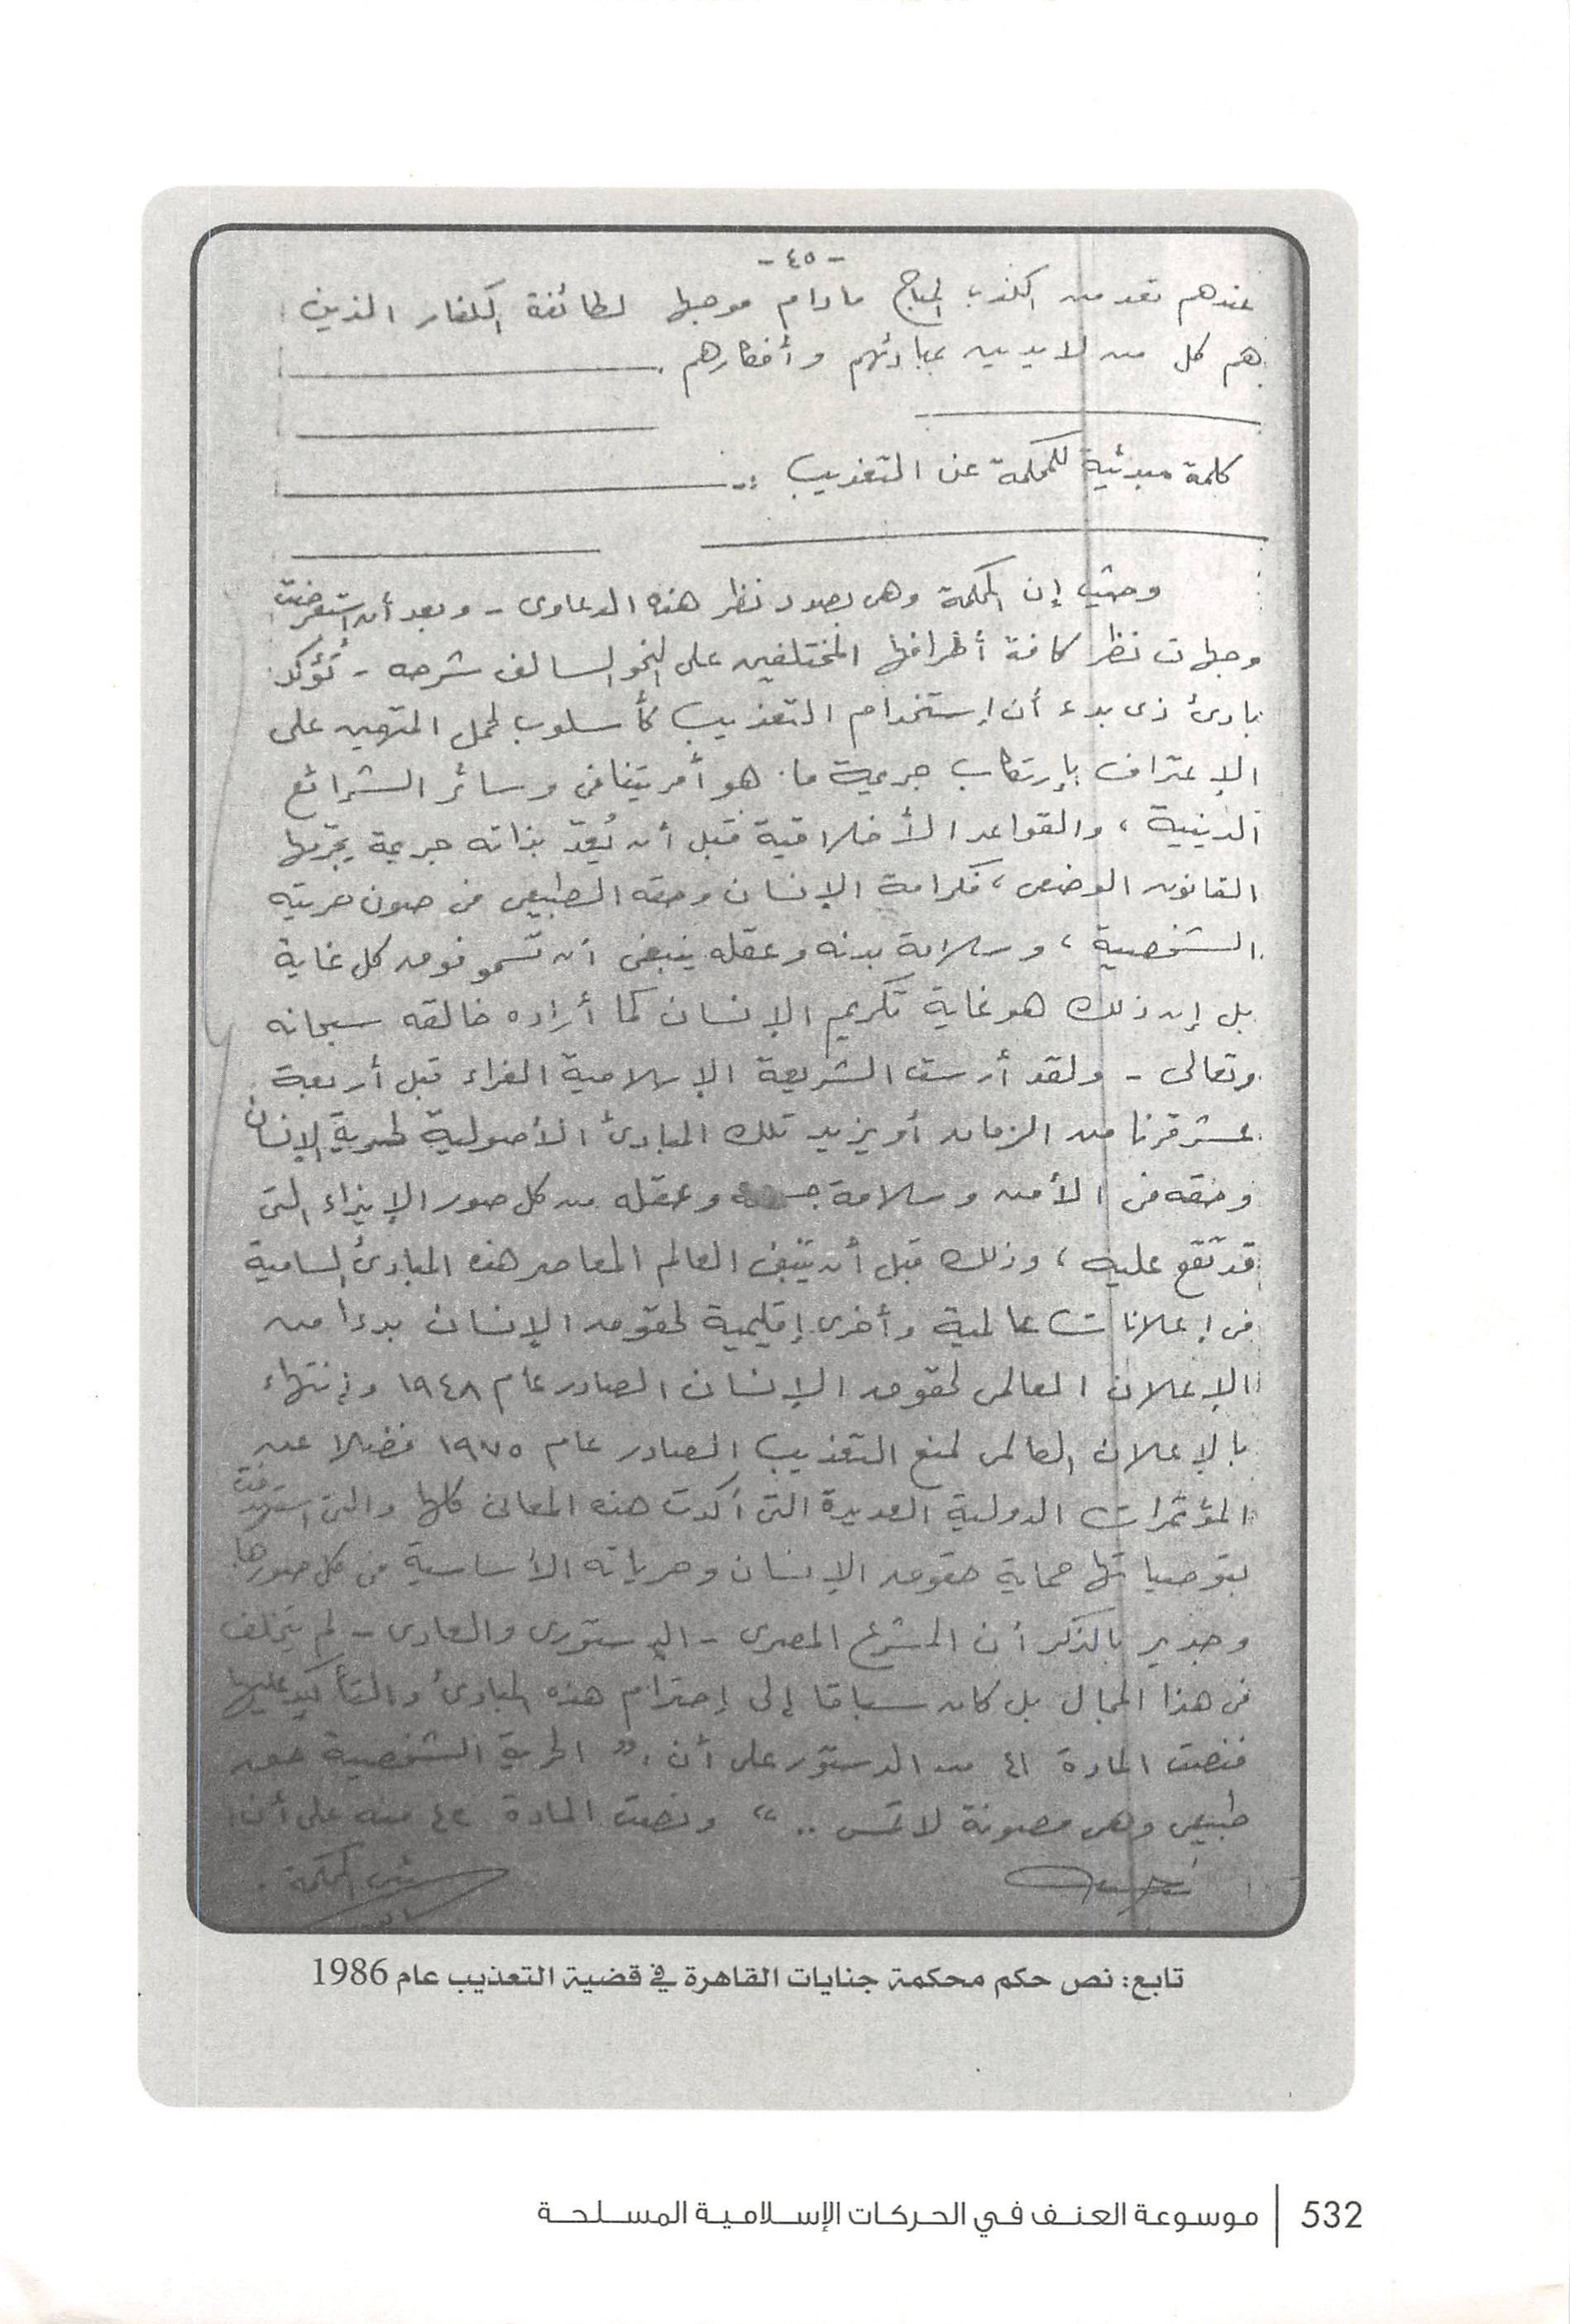 - ٤٥ -
عندهم تعد من الكذب المباح مادام موجها لطائفة الكفار الذين
هم كل من لا يدين بمبادئهم وأفكارهم .
كلمة مبدئية للمحكمة عن التعذيب :-
وحيث إن المحكمة وهى بصدد نظر هذه الدعاوى - وبعد أن استعرضت
وجهات نظر كافة أطرافها المختلفين على النحو السالف شرحه - تُؤكد
بادئ ذى بدء أن إستخدام التعذيب كأسلوب لحمل المتهمين على
الإعتراف بإرتكاب جريمة ما . هو أمر يتنافى وسائر الشرائع
الدينية ، والقواعد الأخلاقية قبل أن يُعدّ بذاته جريمة يجرّمها
القانون الوضعى ، فكرامة الإنسان وحقه الطبيعى فى صون حريته
الشخصية ، وسلامة بدنه وعقله ينبغى أن تسمو فوق كل غاية
بل إن ذلك هو غاية تكريم الإنسان كما أراده خالقه سبحانه
وتعالى - ولقد أرست الشريعة الإسلامية الغراء قبل أربعة
عشر قرنا من الزمان أو يزيد تلك المبادئ الأصولية لحرية الإنسان
وحقه فى الأمن وسلامة وعقله من كل صور الإيذاء التى
قد تقع عليه ، وذلك قبل أن العالم المعاصر هذه المبادئ السامية
فى إعلانات عالمية وأخرى إقليمية لحقوق الإنسان بدءا من
الإعلان العالمى لحقوق الإنسان الصادر عام ١٩٤٨ وإنتهاء
بالإعلان العالمى لمنع التعذيب الصادر عام ١٩٧٥ فضلا عن
المؤتمرات الدولية العديدة التى أكدت هذه المعانى كلها والتى استهدفت
بتوصياتها حماية حقوق الإنسان وحرياته الأساسية فى كل صورها
وجدير بالذكر أن المشرع المصرى - الدستورى والعادى - لم يتخلف
فى هذا المجال بل كان سباقا إلى إحترام هذه المبادئ والتأكيد عليها
فنصت المادة ٤١ من الدستور على أن : " الحرية الشخصية حق
طبيعى وهى مصونة لا تمس .. " ونصت المادة ٤٢ منه على أن :
رئيس المحكمة .
تابع: نص حكم محكمة جنايات القاهرة في قضية التعذيب عام 1986
532 | موسوعة العنف في الحركات الإسلامية المسلحة